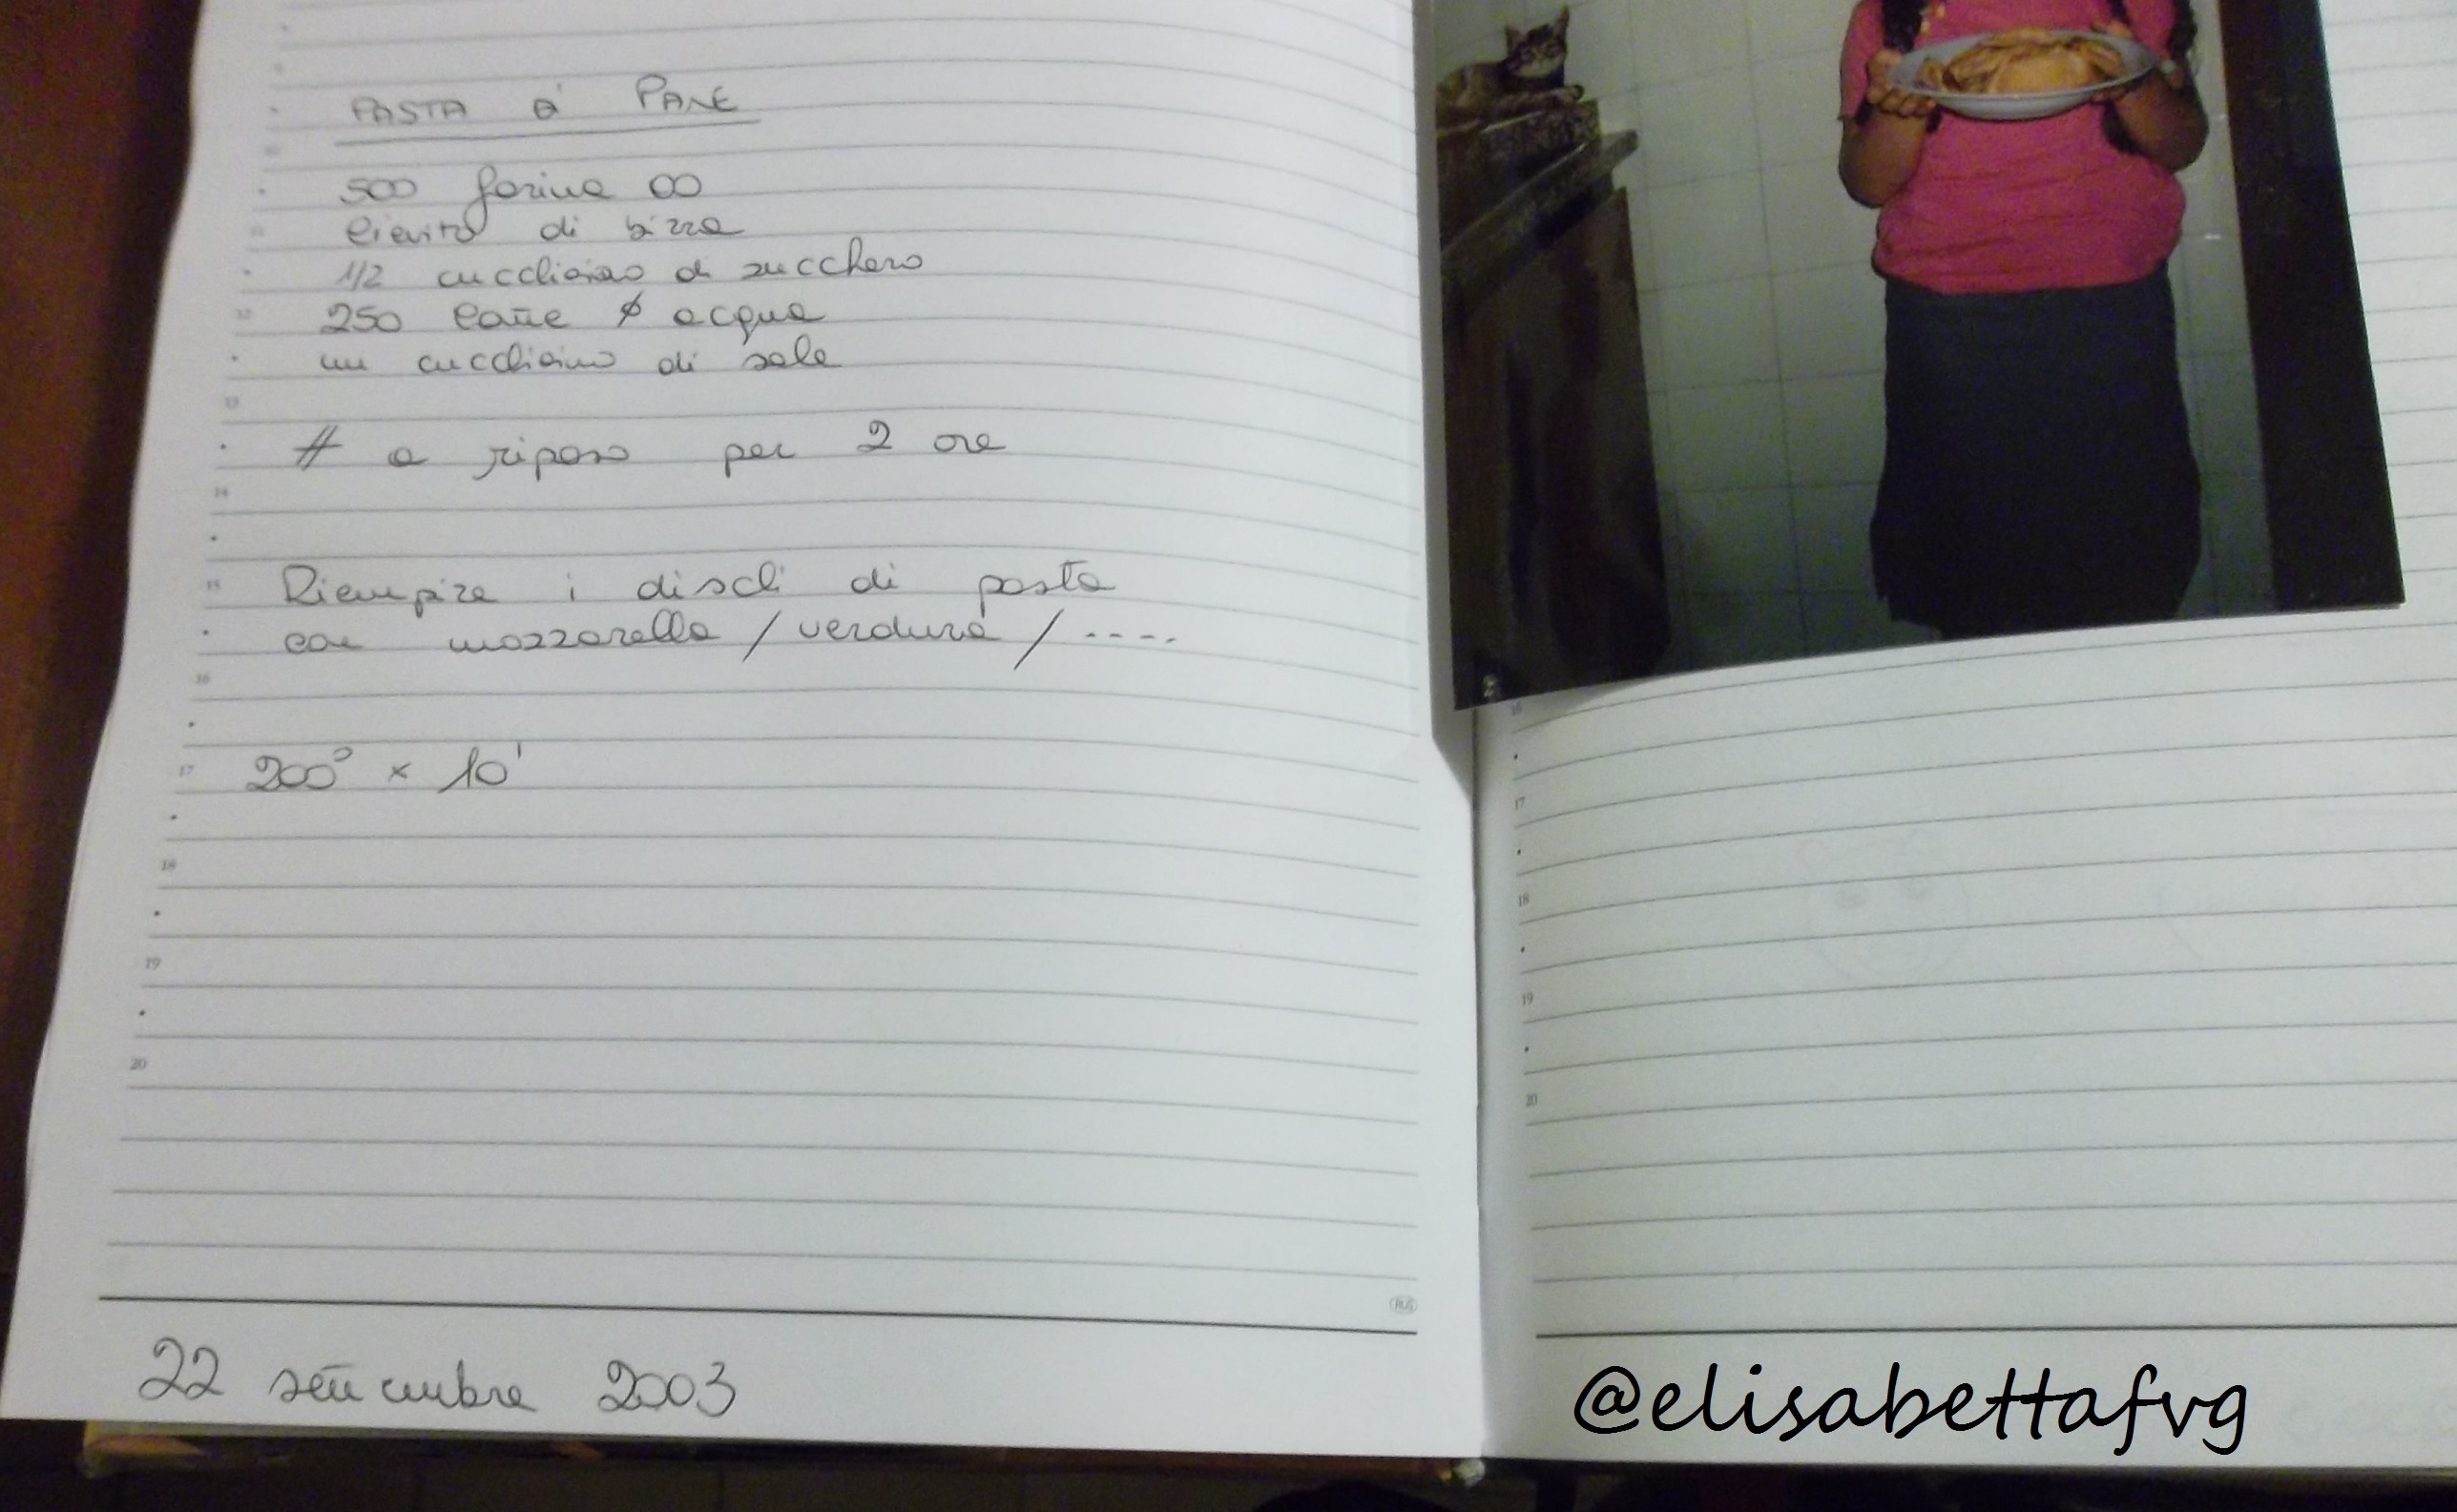 PASTA A' PANE
500 farina 00
lievito di birra
1/2 cucchiaino di zucchero
250 latte o acqua
un cucchiaino di sale
# a riposo per 2 ore
Riempire i dischi di pasta
con mozzarella / verdura / .....
200° x 10'
22 settembre 2003
10
11
12
13
14
15
16
17
18
19
20
16
17
18
19
20
@elisabettafvg